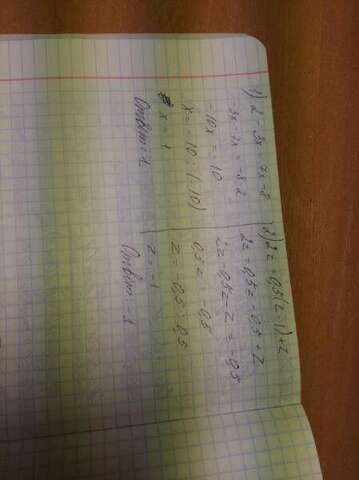 1) 2 - 3x = 7x - 8
-3x - 7x = -8 - 2
-10x = 10
x = -10 : (-10)
x = 1
Ответ: 1.
2) 2z = 0,5(z-1)+z
2z = 0,5z - 0,5 + z
2z - 0,5z - z = -0,5
0,5z = -0,5
z = 0,5 : 0,5
z = -1
Ответ: -1